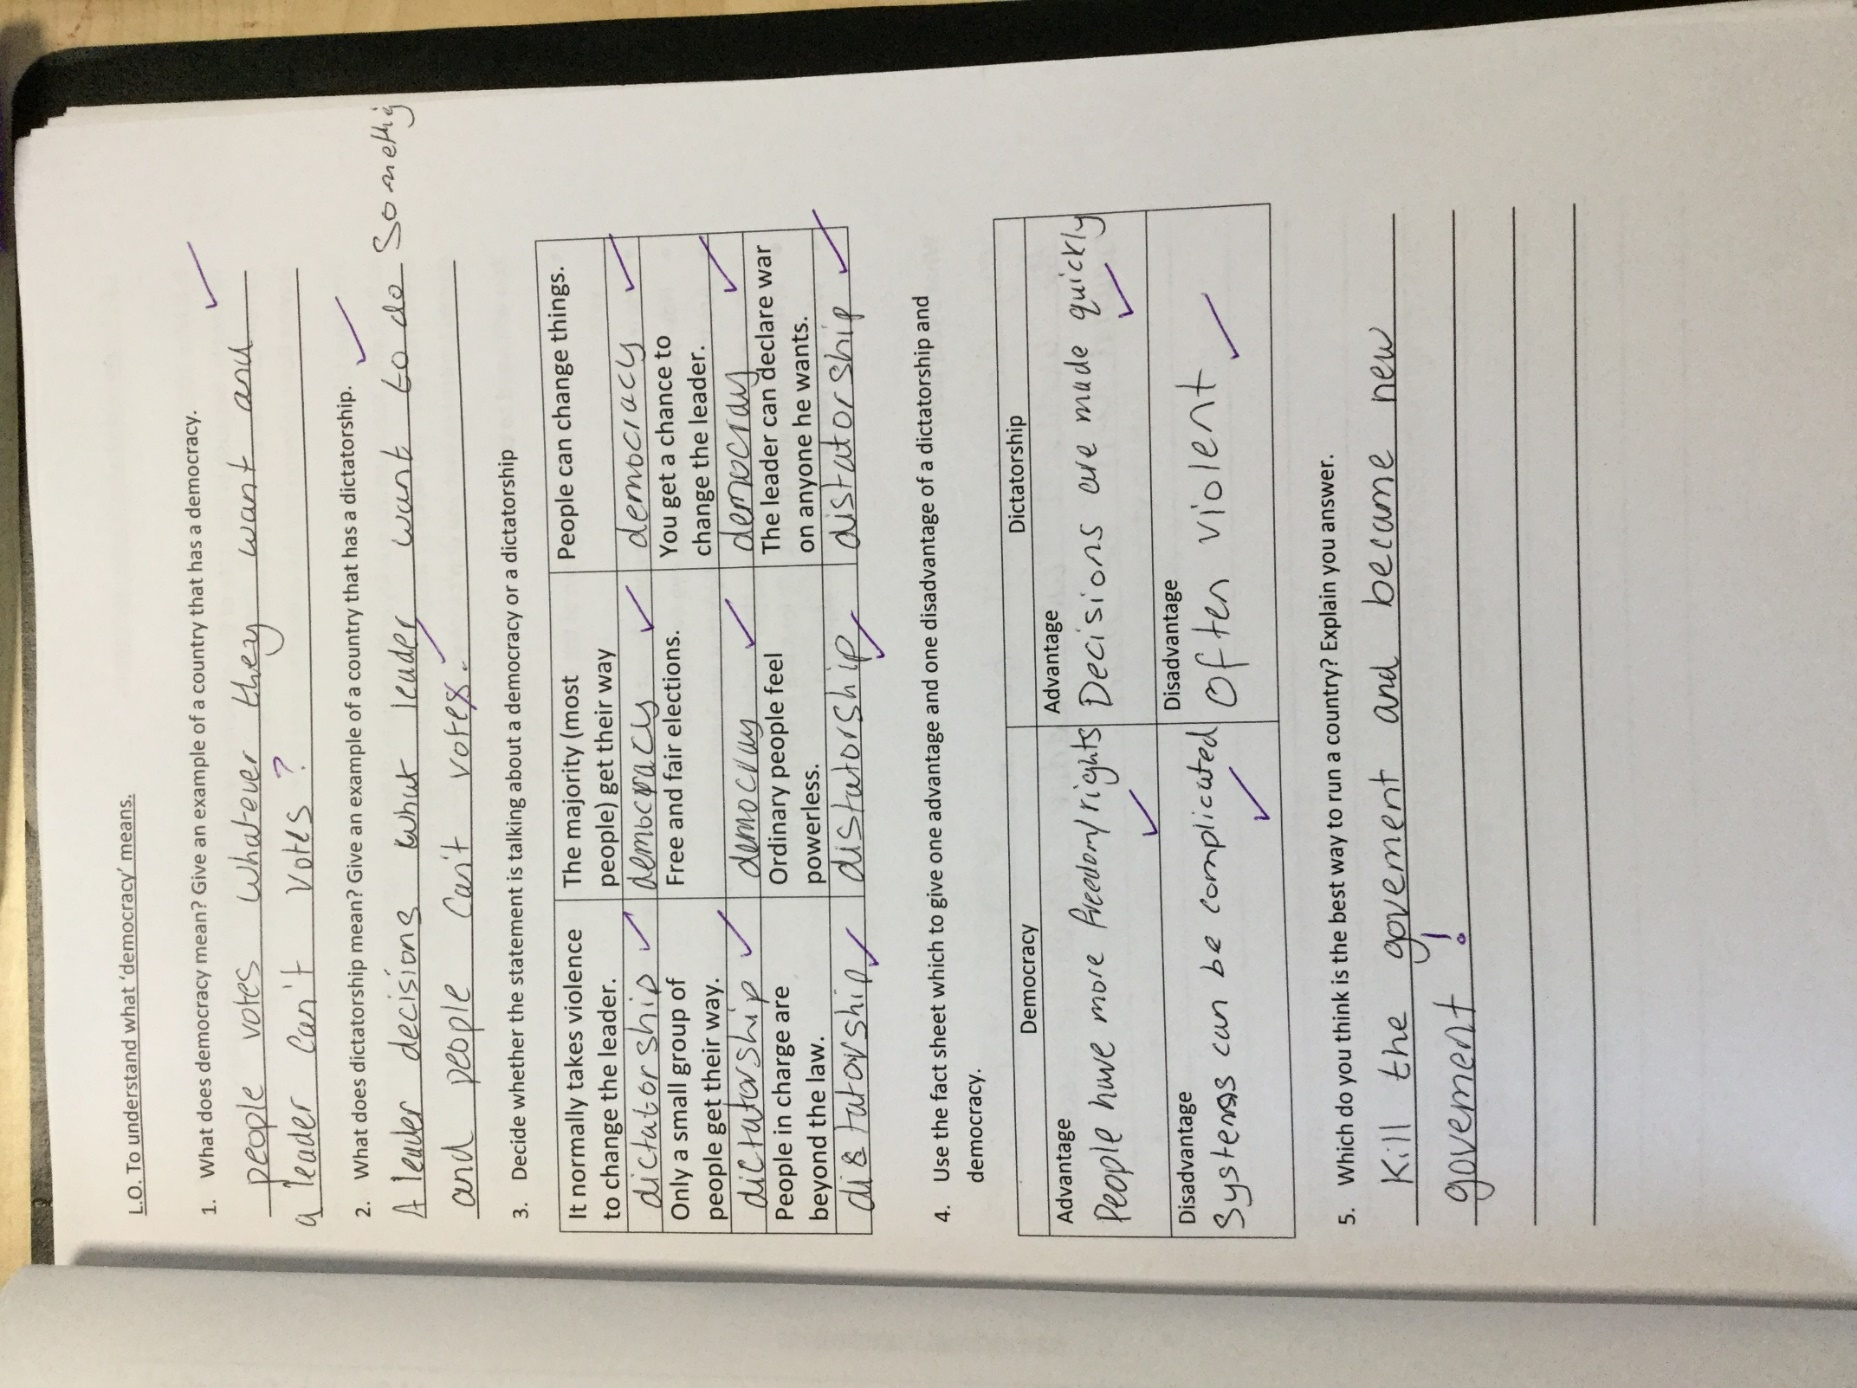 L.O. To understand what 'democracy' means.
1. What does democracy mean? Give an example of a country that has a democracy.
people votes whatever they want and
a leader can't votes ?
2. What does dictatorship mean? Give an example of a country that has a dictatorship.
A leader decisions what leader want to do Something
and people can't votes.
3. Decide whether the statement is talking about a democracy or a dictatorship
It normally takes violence
to change the leader.
dictatorship
The majority (most
people) get their way
democracy
People can change things.
democracy
Only a small group of
people get their way.
dictatorship
Free and fair elections.
democray
You get a chance to
change the leader.
democray
People in charge are
beyond the law.
distatorship
Ordinary people feel
powerless.
distatorship
The leader can declare war
on anyone he wants.
distatorship
4. Use the fact sheet which to give one advantage and one disadvantage of a dictatorship and
democracy.
Democracy
Dictatorship
Advantage
People have more freedom/rights
Advantage
Decisions are made quickly
Disadvantage
Systems can be complicated
Disadvantage
Often violent
5. Which do you think is the best way to run a country? Explain you answer.
Kill the goverment and became new
goverment !